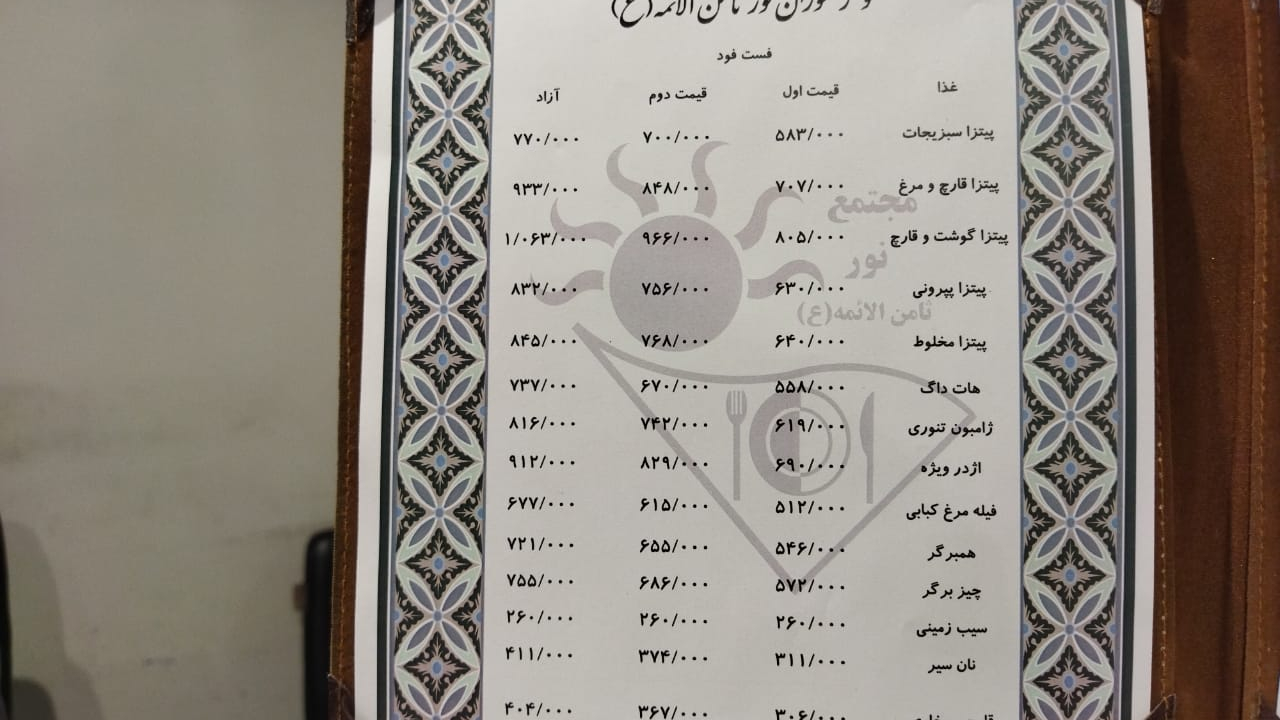 ثامن الائمه(ع)
فست فود
غذا قیمت اول قیمت دوم آزاد
پیتزا سبزیجات ۵۸۳/۰۰۰ ۷۰۰/۰۰۰ ۷۷۰/۰۰۰
پیتزا قارچ و مرغ ۷۰۷/۰۰۰ ۸۴۸/۰۰۰ ۹۳۳/۰۰۰
پیتزا گوشت و قارچ ۸۰۵/۰۰۰ ۹۶۶/۰۰۰ ۱/۰۶۳/۰۰۰
پیتزا پپرونی ۶۳۰/۰۰۰ ۷۵۶/۰۰۰ ۸۳۲/۰۰۰
پیتزا مخلوط ۶۴۰/۰۰۰ ۷۶۸/۰۰۰ ۸۴۵/۰۰۰
هات داگ ۵۵۸/۰۰۰ ۶۷۰/۰۰۰ ۷۳۷/۰۰۰
ژامبون تنوری ۶۱۹/۰۰۰ ۷۴۲/۰۰۰ ۸۱۶/۰۰۰
اژدر ویژه ۶۹۰/۰۰۰ ۸۲۹/۰۰۰ ۹۱۲/۰۰۰
فیله مرغ کبابی ۵۱۲/۰۰۰ ۶۱۵/۰۰۰ ۶۷۷/۰۰۰
همبرگر ۵۴۶/۰۰۰ ۶۵۵/۰۰۰ ۷۲۱/۰۰۰
چیز برگر ۵۷۲/۰۰۰ ۶۸۶/۰۰۰ ۷۵۵/۰۰۰
سیب زمینی ۲۶۰/۰۰۰ ۲۶۰/۰۰۰ ۲۶۰/۰۰۰
نان سیر ۳۱۱/۰۰۰ ۳۷۴/۰۰۰ ۴۱۱/۰۰۰
۳۰۶/۰۰۰ ۳۶۷/۰۰۰ ۴۰۴/۰۰۰
مجتمع
نور
ثامن الائمه(ع)